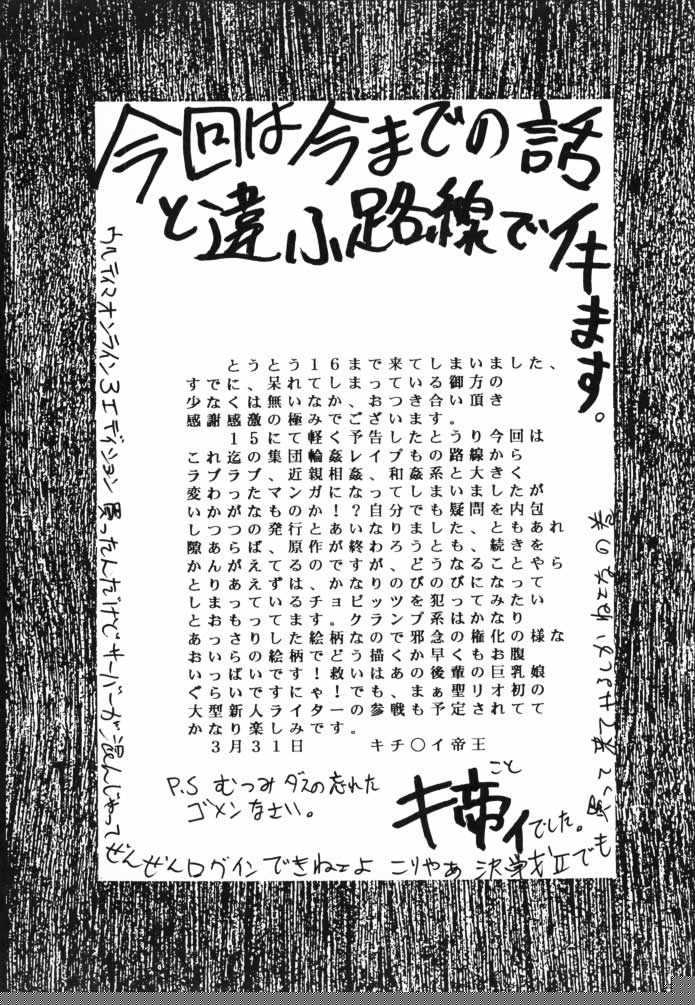 今回は今までの話
と違ふ路線でイキます。
とうとう16まで来てしまいました、
すでに、呆れてしまっている御方の
少なくは無いなか、おつき合い頂き
感謝感激の極みでございます。
15にて軽く予告したとうり今回は
これ迄の集団輪姦レイプもの路線から
ラブラブ、近親相姦、和姦系と大きく
変わったマンガになってしまいましたが
いかがなものか!?自分でも疑問を内包
しつつの発行とあいなりました、ともあれ
隙あらば、原作が終わろうとも、続きを
かんがえてるのですが、どうなることやら
とりあえずは、かなりのびのびになって
しまっているチョビッツを犯ってみたい
とおもってます。クランプ系はかなり
あっさりした絵柄なので邪念の権化の様な
おいらの絵柄でどう描くか早くもお腹
いっぱいです!救いはあの後輩の巨乳娘
ぐらいですにゃ!でも、まぁ聖リオ初の
大型新人ライターの参戦も予定されてて
かなり楽しみです。
3月31日 キチ〇イ帝王
こと
キ帝ィでした。
P.S むつみ ダスの忘れた
ゴメンなさい。
ウルティマオンライン3rdエディション買ったんだけどサーバーが混んじゃって
ぜんぜんログインできねェよ こりゃあ 決戦Ⅱでも